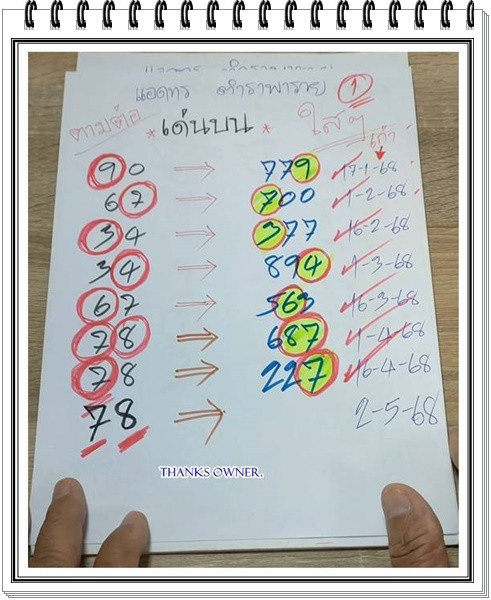 แอดทร ตำราพารวย 1
ตามต่อ *เด่นบน* ใสๆ
เก่า
90 → 779 17-1-68
67 → 700 1-2-68
34 → 377 16-2-68
34 → 894 1-3-68
67 → 563 16-3-68
78 → 687 1-4-68
78 → 227 16-4-68
78 → 2-5-68
THANKS OWNER.